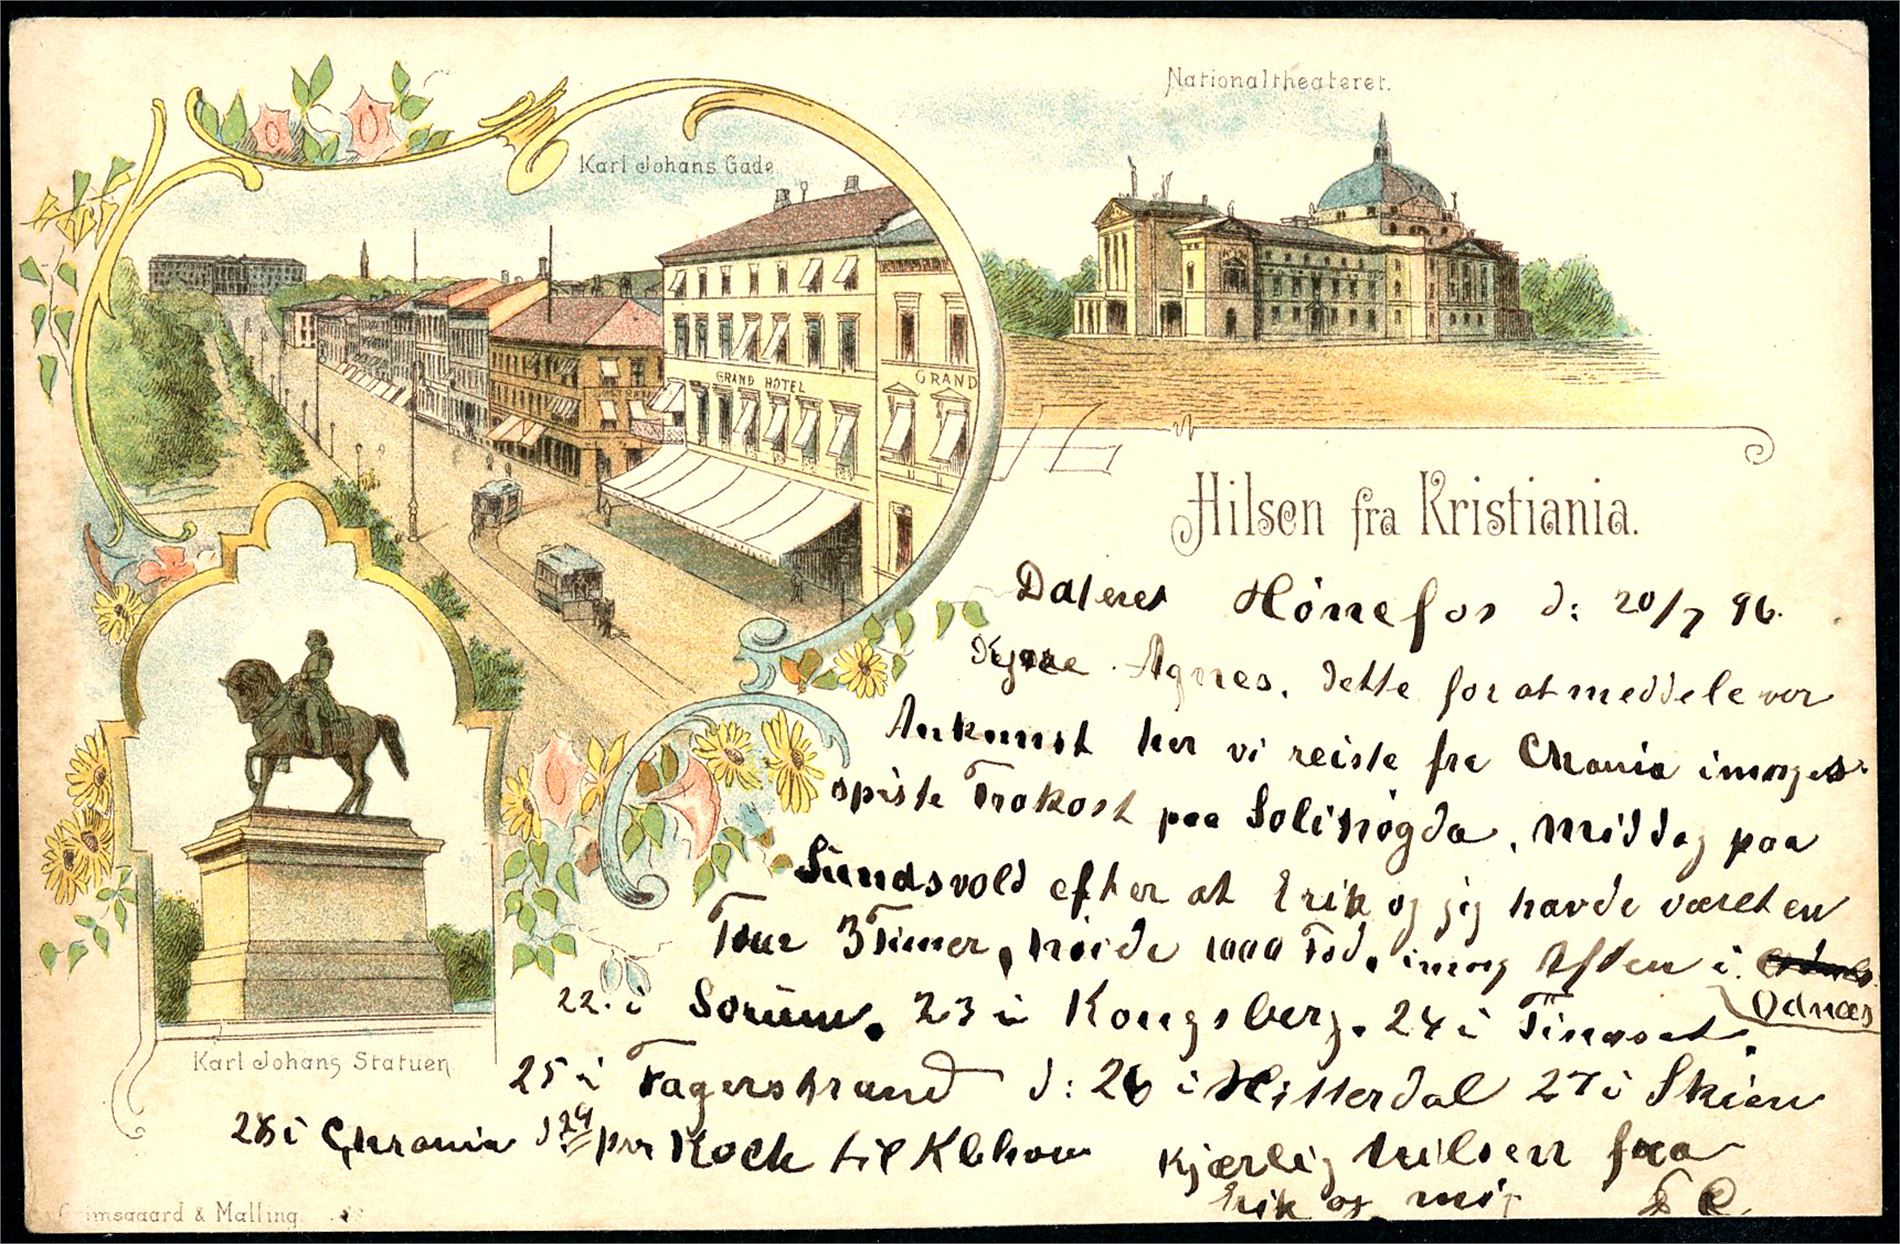 Nationaltheateret.
Karl Johans Gade
GRAND HOTEL
GRAND
Hilsen fra Kristiania.
Dateret Hönnefos d: 20/7 96.
Kjære Agnes, dette for at meddele vor
Ankomst her vi reiste fra Chrania imorges
spiste Frokost paa Solihögda, Middag paa
Sundsvold efter at Erik og jeg havde været en
Tour 3 Timer, höide 1000 Fod, imorg Aften i
Odnæs
22. i Sorum. 23 i Kongsberg. 24 i Tinoset.
25 i Fagerstrand d: 26 i Hitterdal 27 i Skien
28 i Chrania d 29 pr Kock til Kbhavn
Kjærlig hilsen fra
Erik og mig
Karl Johans Statuen
Grimsgaard & Malling.